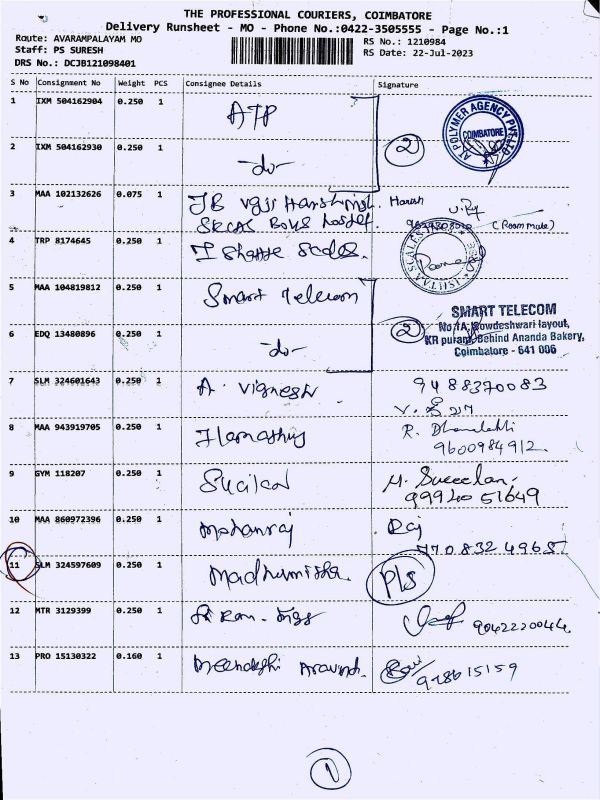 THE PROFESSIONAL COURIERS, COIMBATORE
Delivery Runsheet - MO - Phone No.:0422-3505555 - Page No.:1
Route: AVARAMPALAYAM MO
RS No.: 1210984
Staff: PS SURESH
RS Date: 22-Jul-2023
DRS No.: DCJB121098401
S No Consignment No Weight PCS Consignee Details Signature
1 IXM 504162904 0.250 1 ATP
AT POLYMER AGENCY PVT LTD COIMBATORE
2 IXM 504162930 0.250 1 -do- 2
3 MAA 102132626 0.075 1 JB Harshmish Harish
SRCAS Boys hostel (Room mate)
4 TRP 8174645 0.250 1
5 MAA 104819812 0.250 1 Smart Telecom
SMART TELECOM
No.1A, Gowdeshwari layout,
KR puram, Behind Ananda Bakery,
Coimbatore - 641 006
6 EDQ 13480896 0.250 1 -do- 2
7 SLM 324601643 0.250 1 A. Vignesh 9488370083
8 MAA 943919705 0.250 1 R.
9600984912.
9 GYM 118207 0.250 1 M.
99940 51649
10 MAA 860972396 0.250 1 Mohanraj Raj
11 SLM 324597609 0.250 1 Madhumisha. Pls
12 MTR 3129399 0.250 1 9042220044.
13 PRO 15130322 0.160 1 Meenakshi Aravind.
1